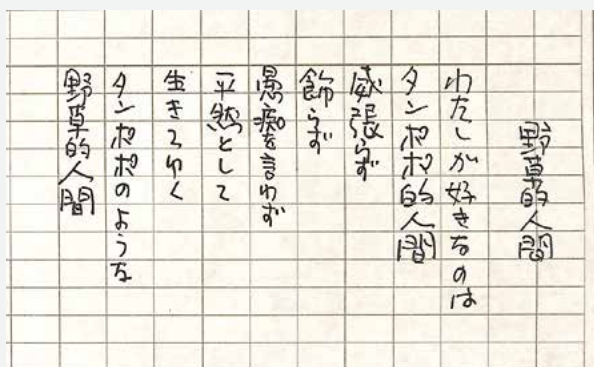 野草的人間
わたしが好きなのは
タンポポ的人間
威張らず
飾らず
愚痴を言わず
平然として
生きてゆく
タンポポのような
野草的人間